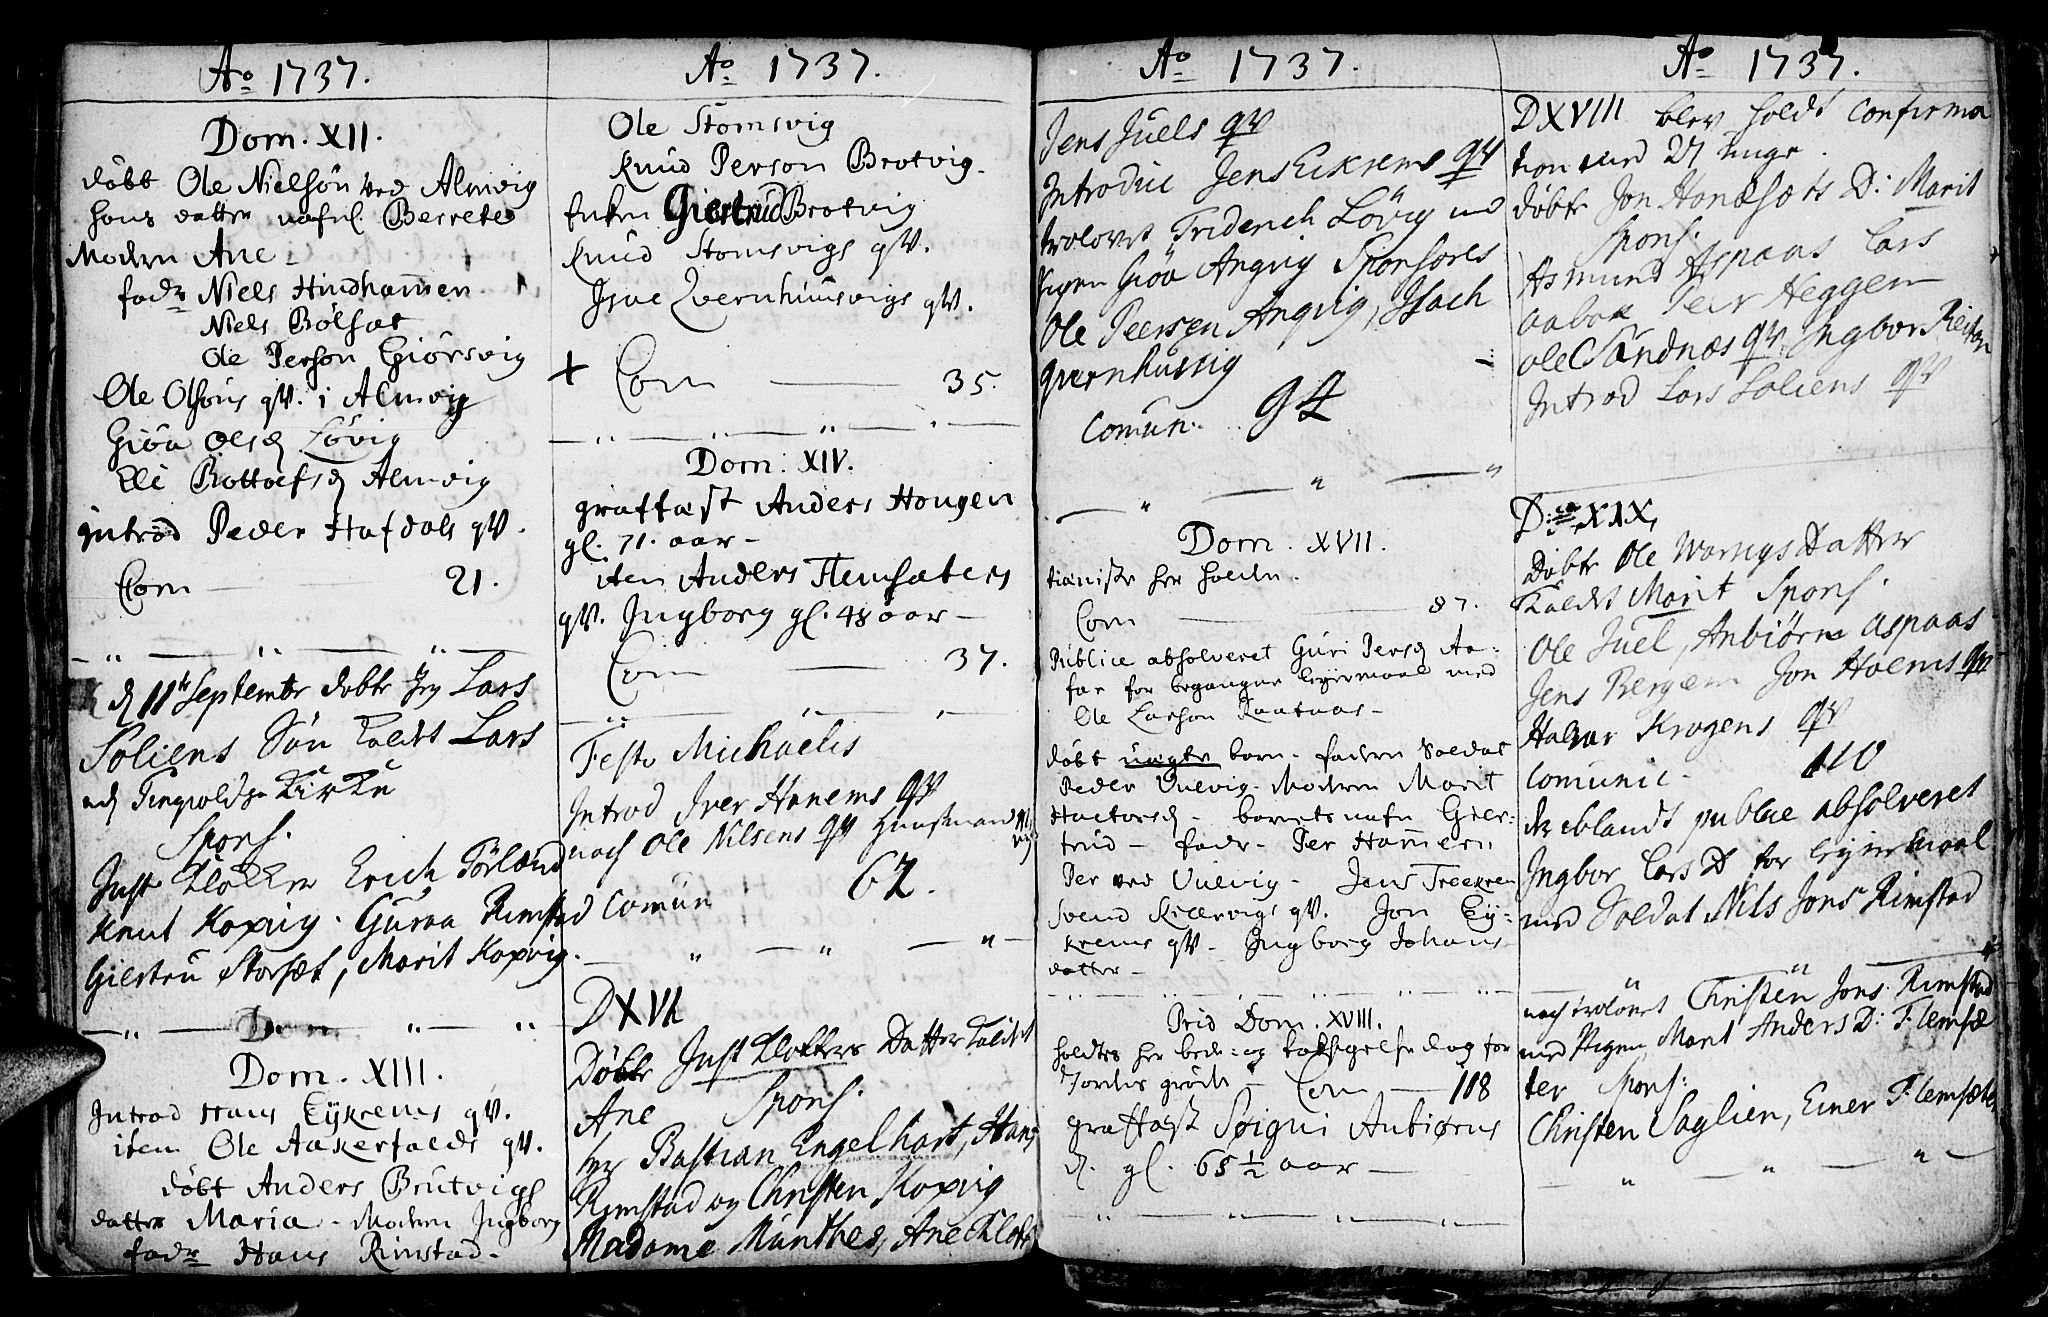 Ao 1737.
Dom. XII.
döbt Ole Nielsön ved Almvig
hans datter nafnl. Berrete
Modern Ane –
fadr Niels Hindhammen
Niels Bölsæt
Ole Person Giörsvig
Ole Olsöns qV. i Almvig
Giöa Olsd Lövig
Eli Rottolfsd Almvig
Introd Peder Hafdals qV.
Com — 21.
d 11te Septembr döbte Jeg Lars
Soliens Sön kaldt Lars
udj Tingvolds Kirke
Spons.
Just Klokker Erich Törlænd
Knut Koxvig. Guraa Rimstad
Giertru Storsæt, Marit Koxvig.
Dom. XIII.
Introd Hans Eÿkrems qV.
item Ole Aakerfalds qV.
döbt Anders Brutvigs
datter Maria – Modern Ingborg
fadr Hans Rimstad –
Ao 1737.
Ole Stomsvig
Knud Person Brotvig
Enken Giertrud Brotvig
Knud Stomsvigs qV.
Com — 35.
Dom. XIV.
graffæst Anders Hougen
gl. 71. aar –
item Anders Flemsæters
qV. Ingborg gl. 48 aar –
Com — 37.
Festo Michaelis
Introd Iver Hanems qV
noch Ole Nilsens qV Huusmand
Comun 62.
D XVI
Döbte Just Klokkers Datter kaldet
Ane Spons.
hr Bastian Engelhart, Hans
Rimstad og Christen Koxvig
Madame Munthes, Ane Klok
Ao 1737.
Jens Juels qV
Introduc Jens Eikrems qV
trolovet Friderich Lövig med
Pigen Giöa Angvig Sponsores
Ole Peersen Angvig, Isach
qvernhusvig
Comun. 94
Dom. XVII.
tieniste her holden.
Com — 87.
Publice absolveret Guri Persd Aa-
for begangne leÿermaal med
Ole Larson
döbt uægte barn – fadern Soldat
Peder Vulvig – Modern Marit
barnets nafn Gier-
trud – fadr – Per Hammern
Per ved Vulvig – Jens Treekrem
Svend qV. Jon Eÿ-
krems qV – Ingborg Johans
datter –
Prid Dom. XVIII.
holdtes her bede- og taksigelse dag for
Jordens gröde – Com — 108
graffæst Siigni Anbiörns
d. gl. 68 1/2 aar —
Ao 1737.
D XVIII blev holdt Confirma
tion med 27 unge.
döbte Jon Hanssæts D: Marit
Spons.
Asmund Aspaas Lars
Peir Heggem
Ole Sandnæs qV. Ingbor
Introd Lars Soliens qV
D: XIX,
Döbte Ole datter
kaldt Marit Spons.
Ole Juel, Anbiörn Aspaas
Jens Bergem Jon Holems qV
Halvor Krogens qV
Comunic – 110
der iblandt publice absolveret
Ingbor Lars D for leÿermaal
med Soldat Nils Jons Rimstad
noch trolovet Christen Jons Rimstad
med Pigen Marit Anders D: Flemsæ
ter Spons:
Christen Saglien, Einer Flemsæter